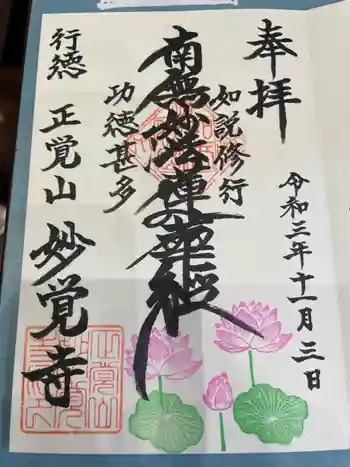 奉拝
令和三年十一月三日
如説修行
南無妙法蓮華経
功徳甚多
行徳
正覚山
妙覚寺